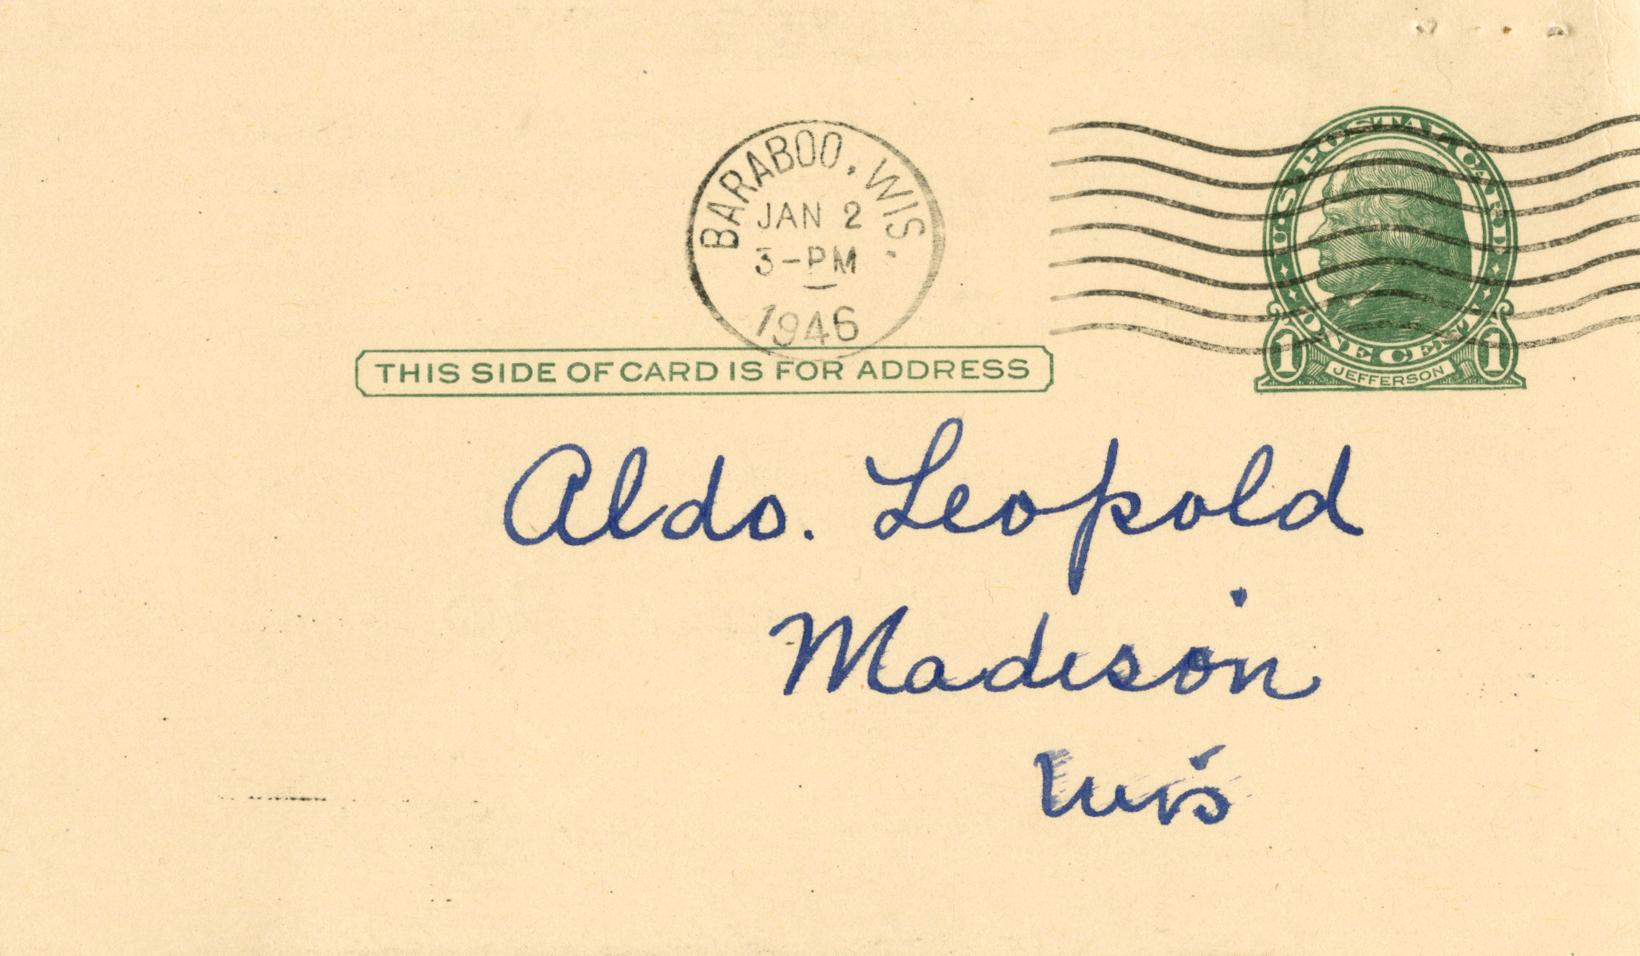 BARABOO, WIS.
JAN 2
3-PM
1946
U.S. POSTAL CARD
ONE CENT
1 JEFFERSON 1
THIS SIDE OF CARD IS FOR ADDRESS
Aldo. Leopold
Madison
Wis